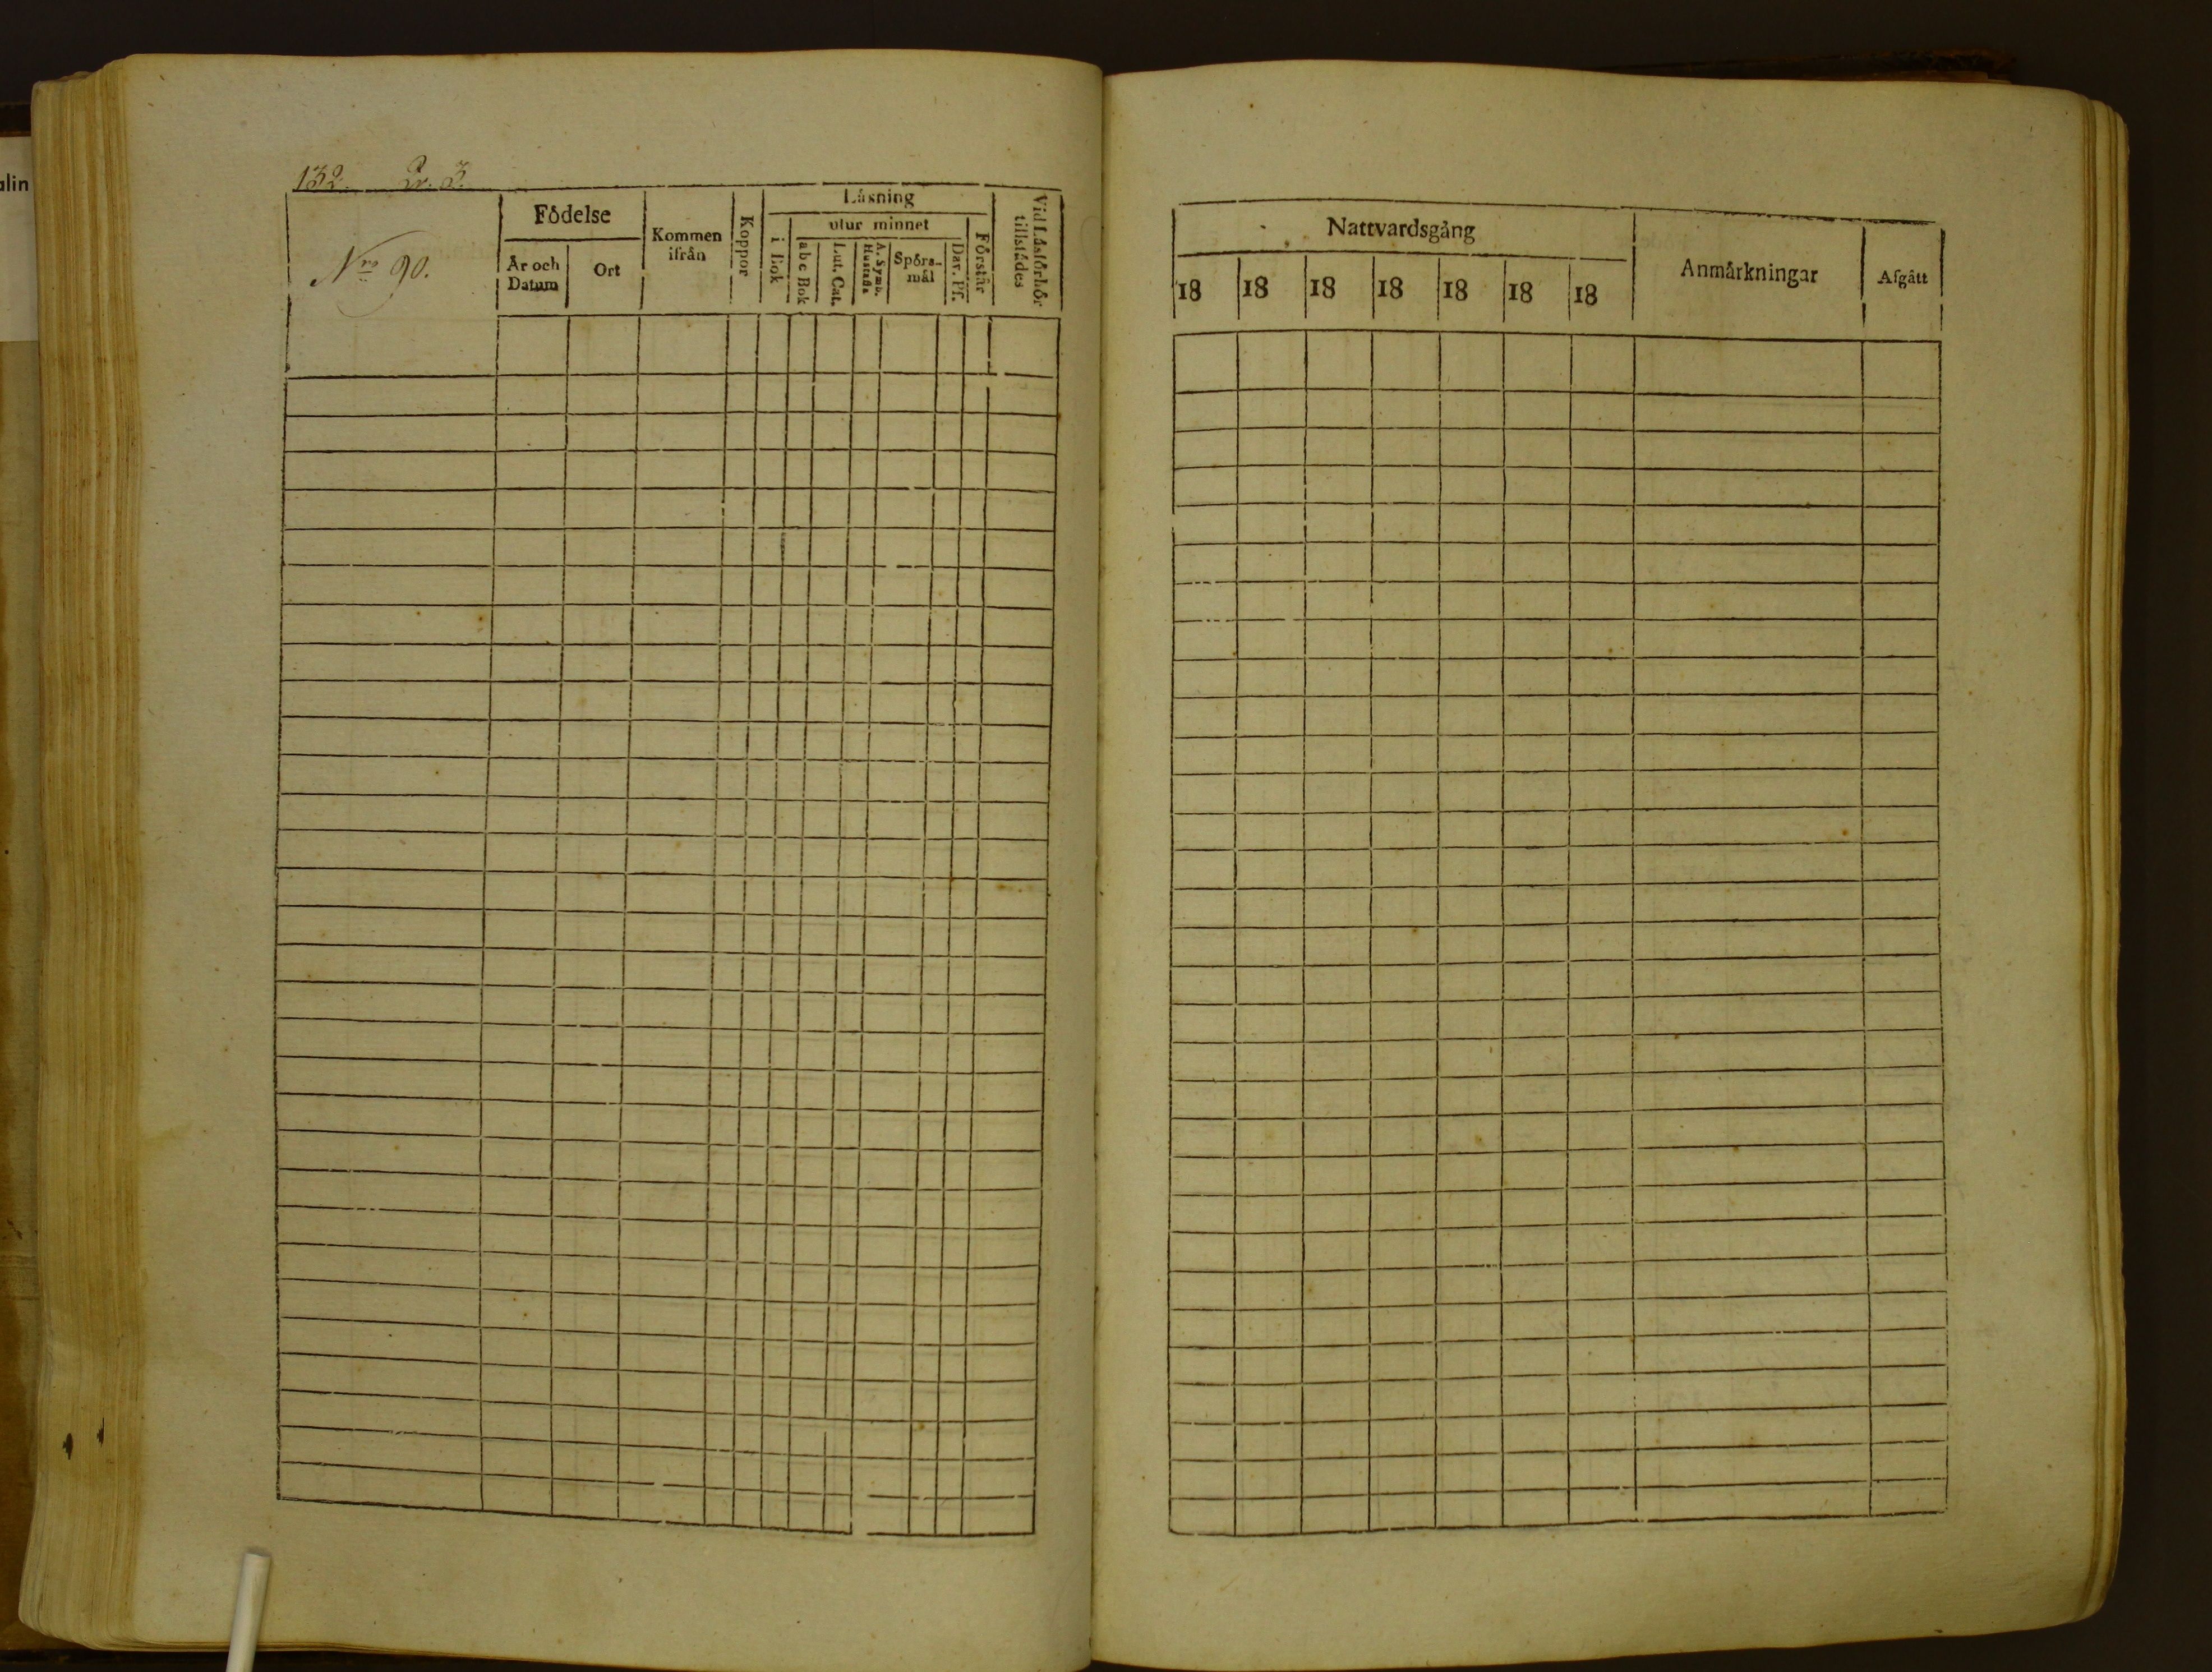 alin
132. Qv. 3.
Nro 90.
Födelse
År och Datum
Ort
Kommen ifrån
Koppor
Läsning
i Bok
utur minnet
abc Bok
Lut. Cat.
A. Symb. Hustafla
Spörs-
mål
Dav. Ps.
Förstår
Vid Läsförhör tillstädes
Nattvardsgång
18 18 18 18 18 18 18
Anmärkningar
Afgått